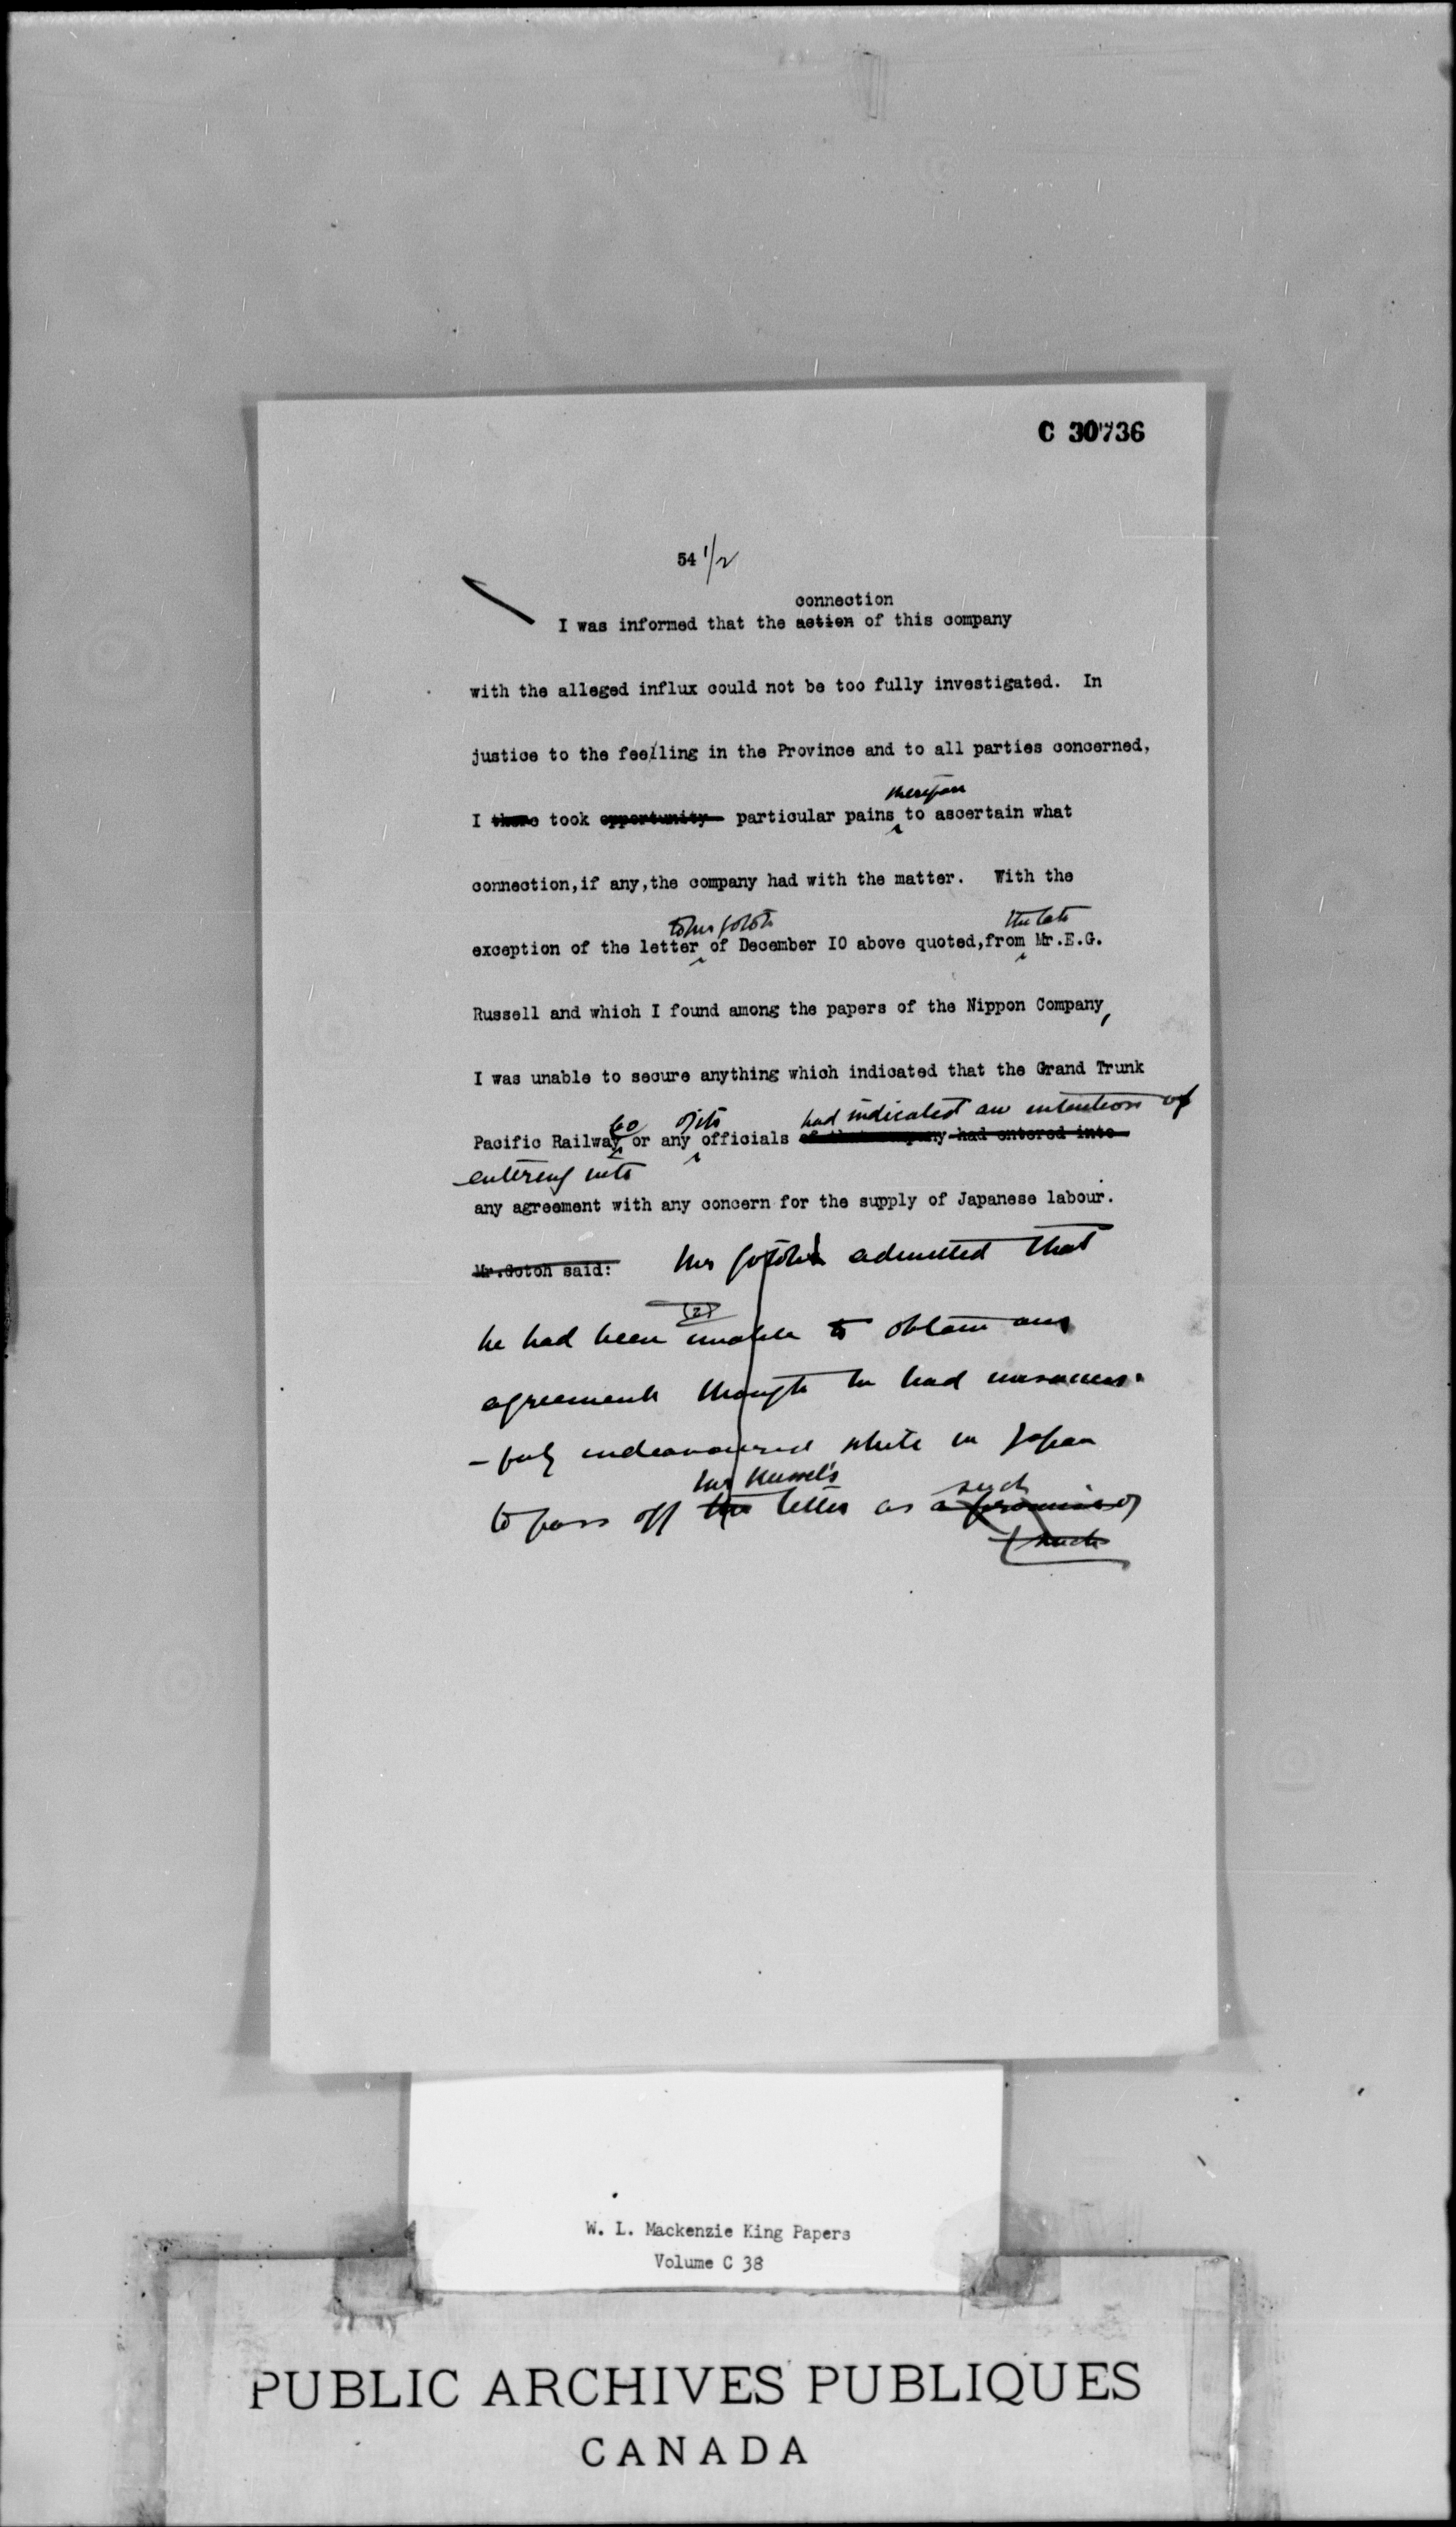 C 30736
54 1/2
connection
I was informed that the action of this company
with the alleged influx could not be too fully investigated. In
justice to the feelling in the Province and to all parties concerned,
therefore
I there took opportunity particular pains to ascertain what
connection,if any,the company had with the matter. With the
to Mr Gotoh the late
exception of the letter of December 10 above quoted,from Mr.E.G.
Russell and which I found among the papers of the Nippon Company,
I was unable to secure anything which indicated that the Grand Trunk
Co of its had indicated an intention of
Pacific Railway, or any officials of that company had entered into
entering into
any agreement with any concern for the supply of Japanese labour.
Mr.Gotoh said: Mr Gotoh admitted that
(2)
he had been unable to obtain any
agreement though he had unsuccess-
-fully endeavoured while in Japan
Mr Russel's such
to pass off the letter as a promise of
such
W. L. Mackenzie King Papers
Volume C 38
PUBLIC ARCHIVES PUBLIQUES
CANADA